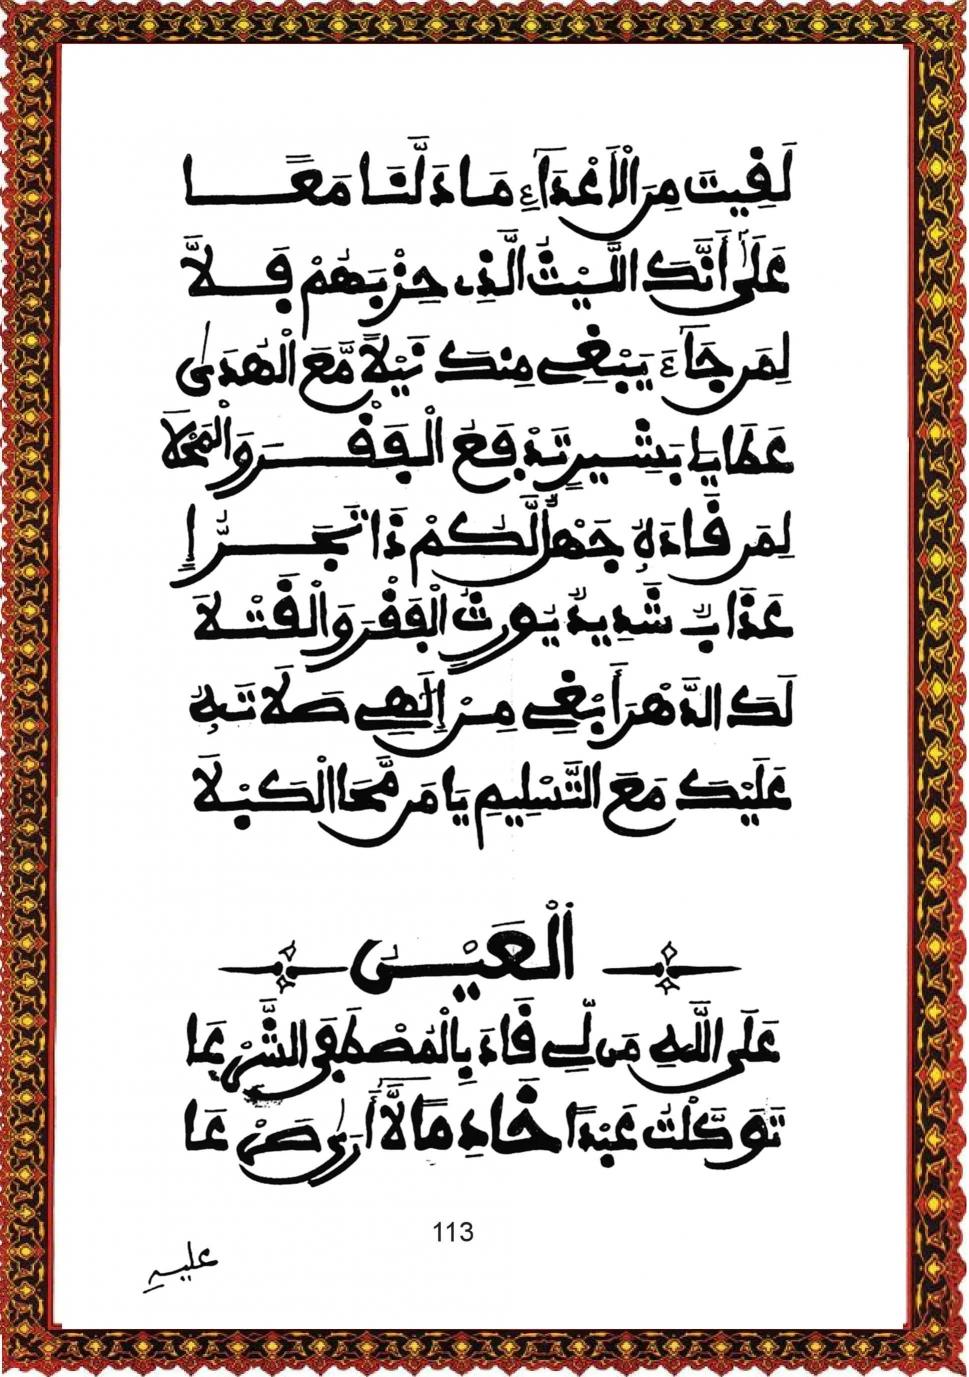 لَقِيتَ مِنَ الْأَعْدَاءِ مَا دَلَّنَا مَعًا
عَلَى أَنَّكَ اللَّيْثُ الَّذِي حِزْبَهُمْ فَلَّا
لِمَن جَاءَ يَبْغِي مِنكَ نَيْلًا مَّعَ الْهُدَى
عَطَايَا بَشِيرٍ تَدْفَعُ الْفَقْرَ وَالْمَحْلَا
لِمَن قَادَهُ جَهْلٌ لَّكُمْ ذَا تَجَرُّإٍ
عَذَابٌ شَدِيدٌ يُورِثُ الْفَقْرَ وَالْقَتْلَا
لَكَ الدَّهْرَ أَبْغِي مِنْ إِلَهِي صَلَاتَهُ
عَلَيْكَ مَعَ التَّسْلِيمِ يَا مَن مَّحَا الْكَبْلَا
الْعَيْنُ
عَلَى اللَّهِ مَن لِّي قَادَ بِالْمُصْطَفَى الشَّرْعَا
تَوَكَّلْتُ عَبْدًا خَادِمًا لَّا أَرَى صَرْعَا
113
عليه